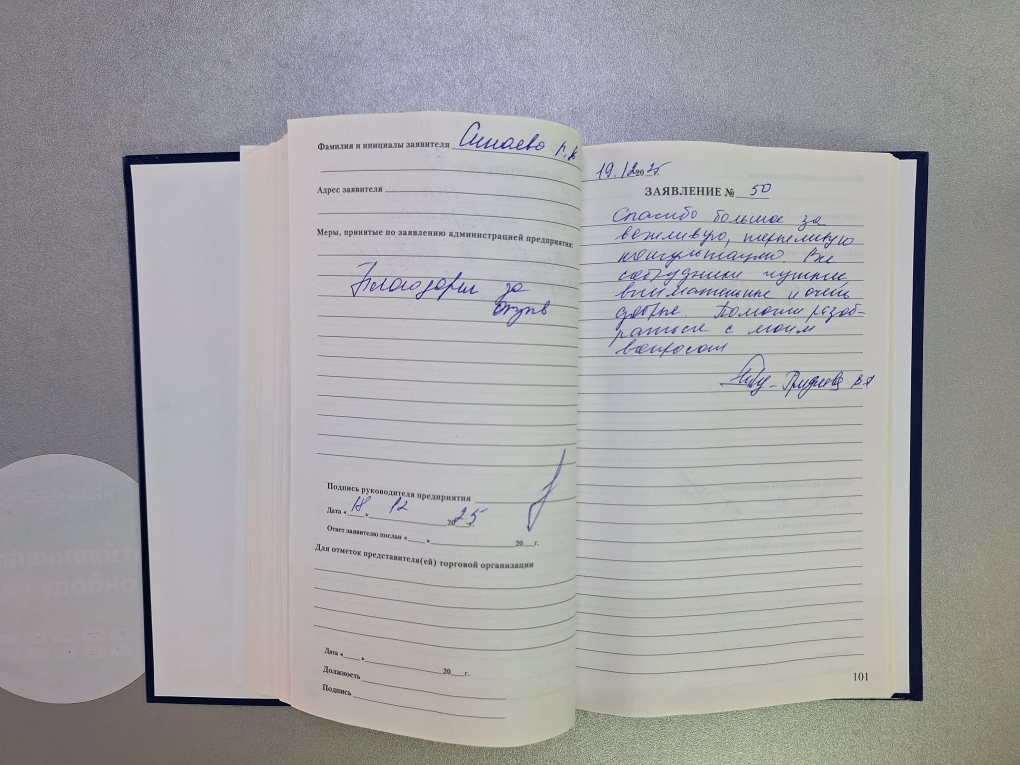 Фамилия и инициалы заявителя Синаево Н.В
Адрес заявителя
Меры, принятые по заявлению администрацией предприятия:
Благодарим за
отзыв
Подпись руководителя предприятия
Дата « 18. » 12 2025 г.
Ответ заявителю послан « » 20 г.
Для отметок представителя(ей) торговой организации
Дата « » 20 г.
Должность
Подпись
19.12 2025
ЗАЯВЛЕНИЕ № 50
Спасибо большое за
вежливую, терпеливую
консультацию. Все
сотрудники чуткие,
внимательные и очень
добрые. Помогли разоб-
раться с моим
вопросом
101